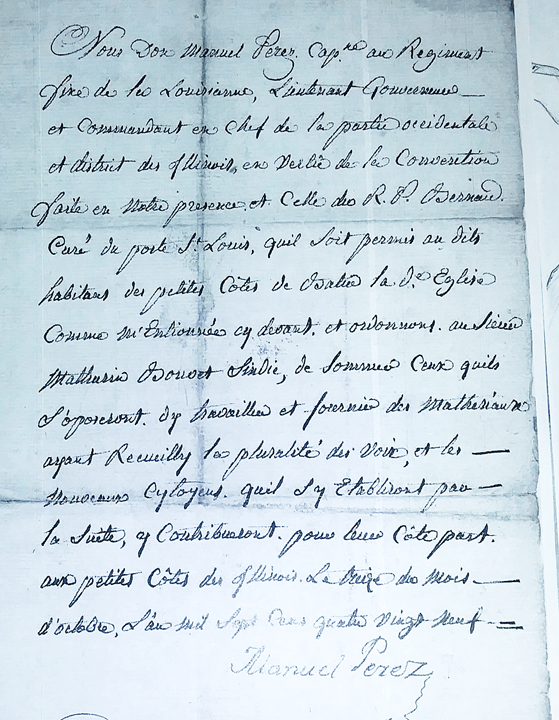 Nous Don Manuel Perez. Capne au Regiment
fixe de la Louisianne, Lieutenant Gouverneur —
et Commandant en Chef de la partie occidentale
et district des Illinois, en Vertue de la Convention
faite en Notre presence, et Celle du R. P. Bernard.
Curé du poste St. Louis, quil Soit permis au dits
habitans des petites Côtes de Batir la de. Eglise
Comme m'Entionnée cy devant. et ordonnons. au Sieur
Mathurin Bouvet Sindic, de Sommer Ceux quils
S'oposeront. d'y travailler et fournir des Matheriaux
ayant Recueilly la pluralité des Voix, et les —
Nouveaux Cytoyens. quil S'y Etabliront par —
la Suite, y Contribueront. pour leur Côte part.
aux petites Côtes des Illinois. Le treize du Mois —
d'octobre, L'an Mil Sept Cens quatre Vingt Neuf —
Manuel Perez